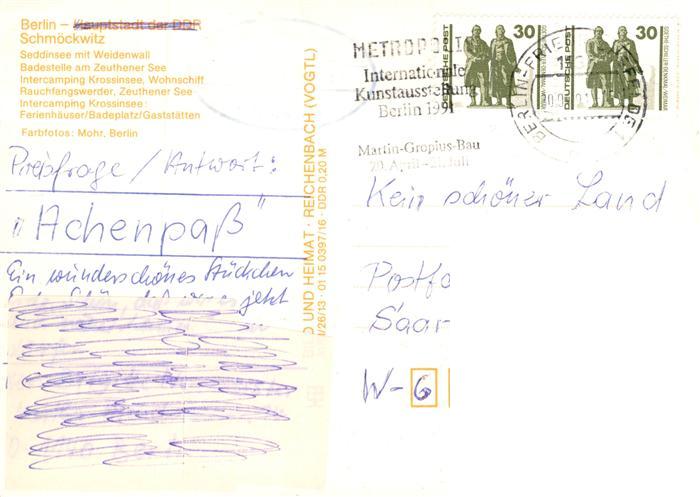 Berlin – Hauptstadt der DDR
Schmöckwitz
Seddinsee mit Weidenwall
Badestelle am Zeuthener See
Intercamping Krossinsee, Wohnschiff
Rauchfangswerder, Zeuthener See
Intercamping Krossinsee:
Ferienhäuser/Badeplatz/Gaststätten
Farbfotos: Mohr, Berlin
Preisfrage / Antwort:
"Achenpaß"
Ein wunderschönes Stückchen
jetzt
D UND HEIMAT · REICHENBACH (VOGTL)
/26/13 · 01 15 0397/16 · DDR 0,20 M
METROPOLIS
Internationale
Kunstausstellung
Berlin 1991
Martin-Gropius-Bau
20. April – 21. Juli
30
DEUTSCHE POST
GOETHE-SCHILLER-DENKMAL WEIMAR
30
DEUTSCHE POST
GOETHE-SCHILLER-DENKMAL WEIMAR
BERLIN-FRIEDRICHSFELDE
Kein schöner Land
Postfa
Saar
W-6